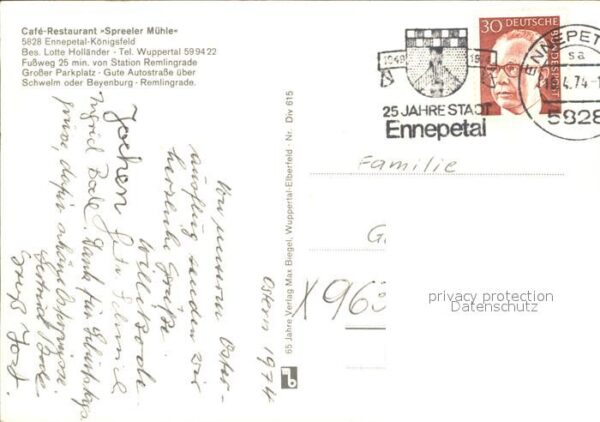 Café-Restaurant »Spreeler Mühle«
5828 Ennepetal-Königsfeld
Bes. Lotte Holländer · Tel. Wuppertal 59 94 22
Fußweg 25 min. von Station Remlingrade
Großer Parkplatz · Gute Autostraße über
Schwelm oder Beyenburg - Remlingrade.
Ostern 1974
Von unserm Oster-
ausflug senden wir
herzliche Grüße
Willi Bode
Jochen
Ingrid Bode. Dank für
Gertrud Bode
Gruß
65 Jahre Verlag Max Biegel, Wuppertal-Elberfeld · Nr. Div 615
1949 1974
25 JAHRE STADT
Ennepetal
30 DEUTSCHE
BUNDESPOST
ENNEPET
sa
4.74-1
5828
Familie
G
X 963
privacy protection
Datenschutz